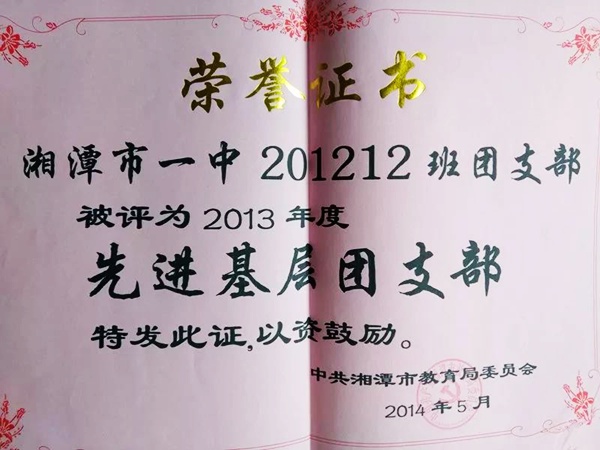 荣誉证书
湘潭市一中 201212 班团支部
被评为 2013 年度
先进基层团支部
特发此证,以资鼓励。
中共湘潭市教育局委员会
2014 年 5 月